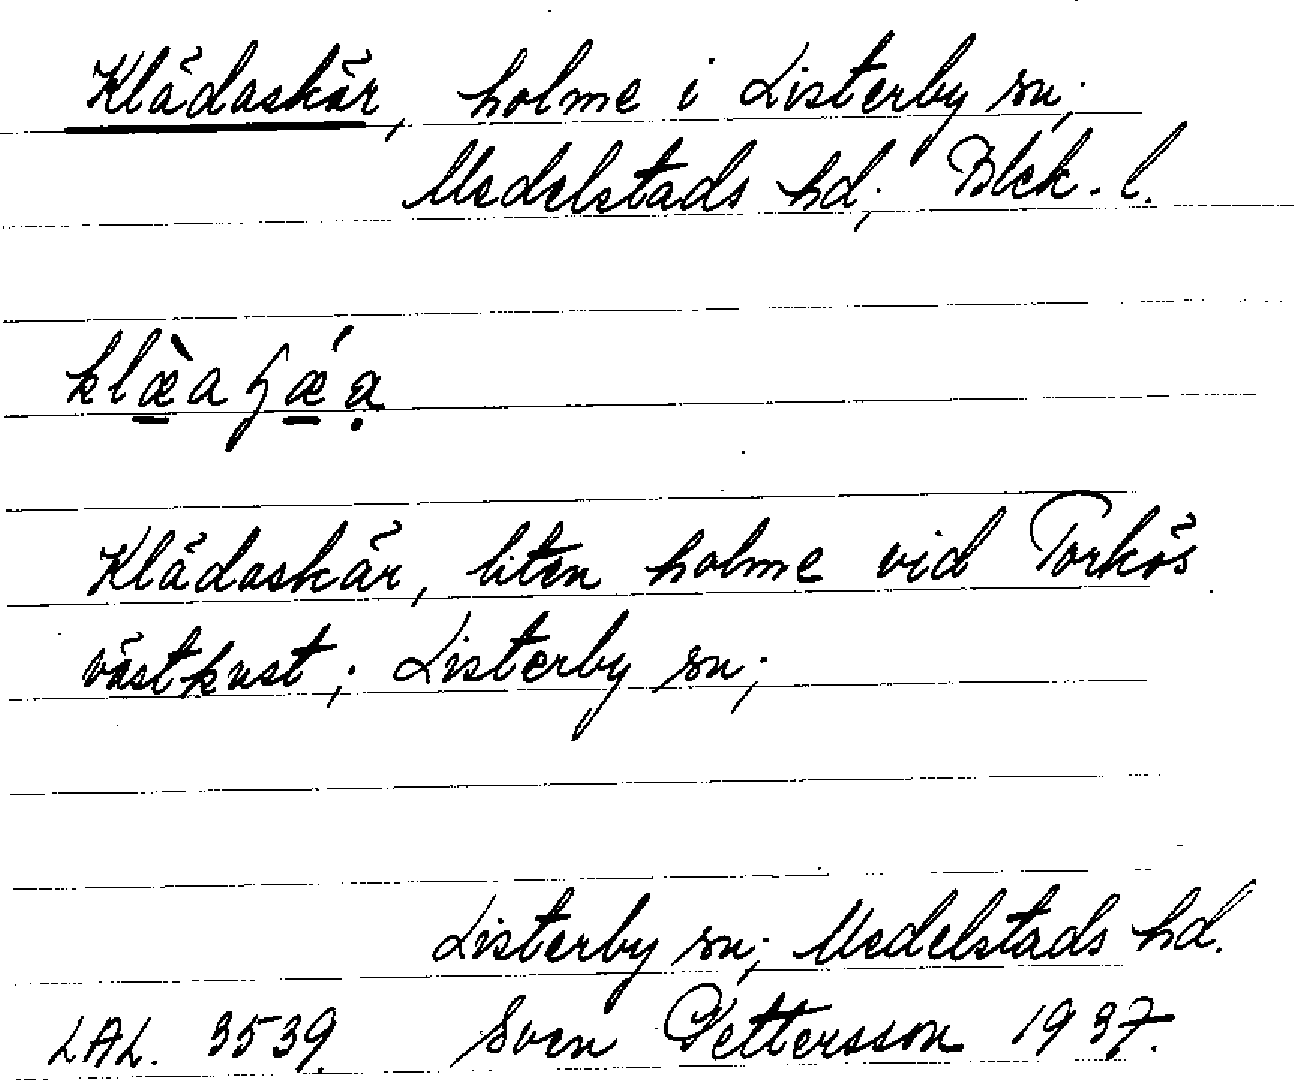 Klädaskär, holme i Listerby sn;
Medelstads hd; Blek. l.
klæ̀aɧǽạ
Klädaskär, liten holme vid Torkös
västkust; Listerby sn;
Listerby sn; Medelstads hd.
LAL. 3539. Sven Pettersson 1937.